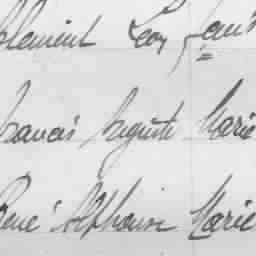 Clément Léon Jean
Francis Auguste Marie
René Alphonse Marie